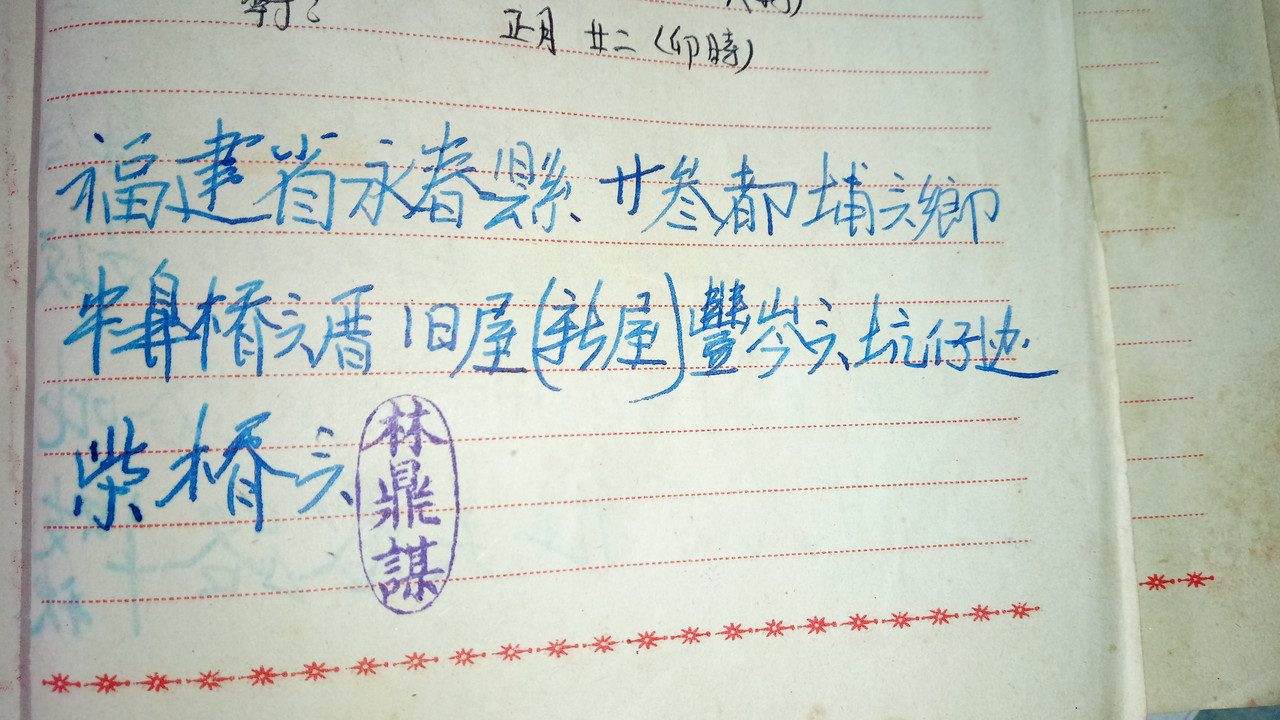 正月 廿二 (卯時)
福建省永春縣 廿叁都埔头鄉
半鼻橋头厝 旧屋(新屋)豐岑头坑仔边
柴橋头
林鼎謀